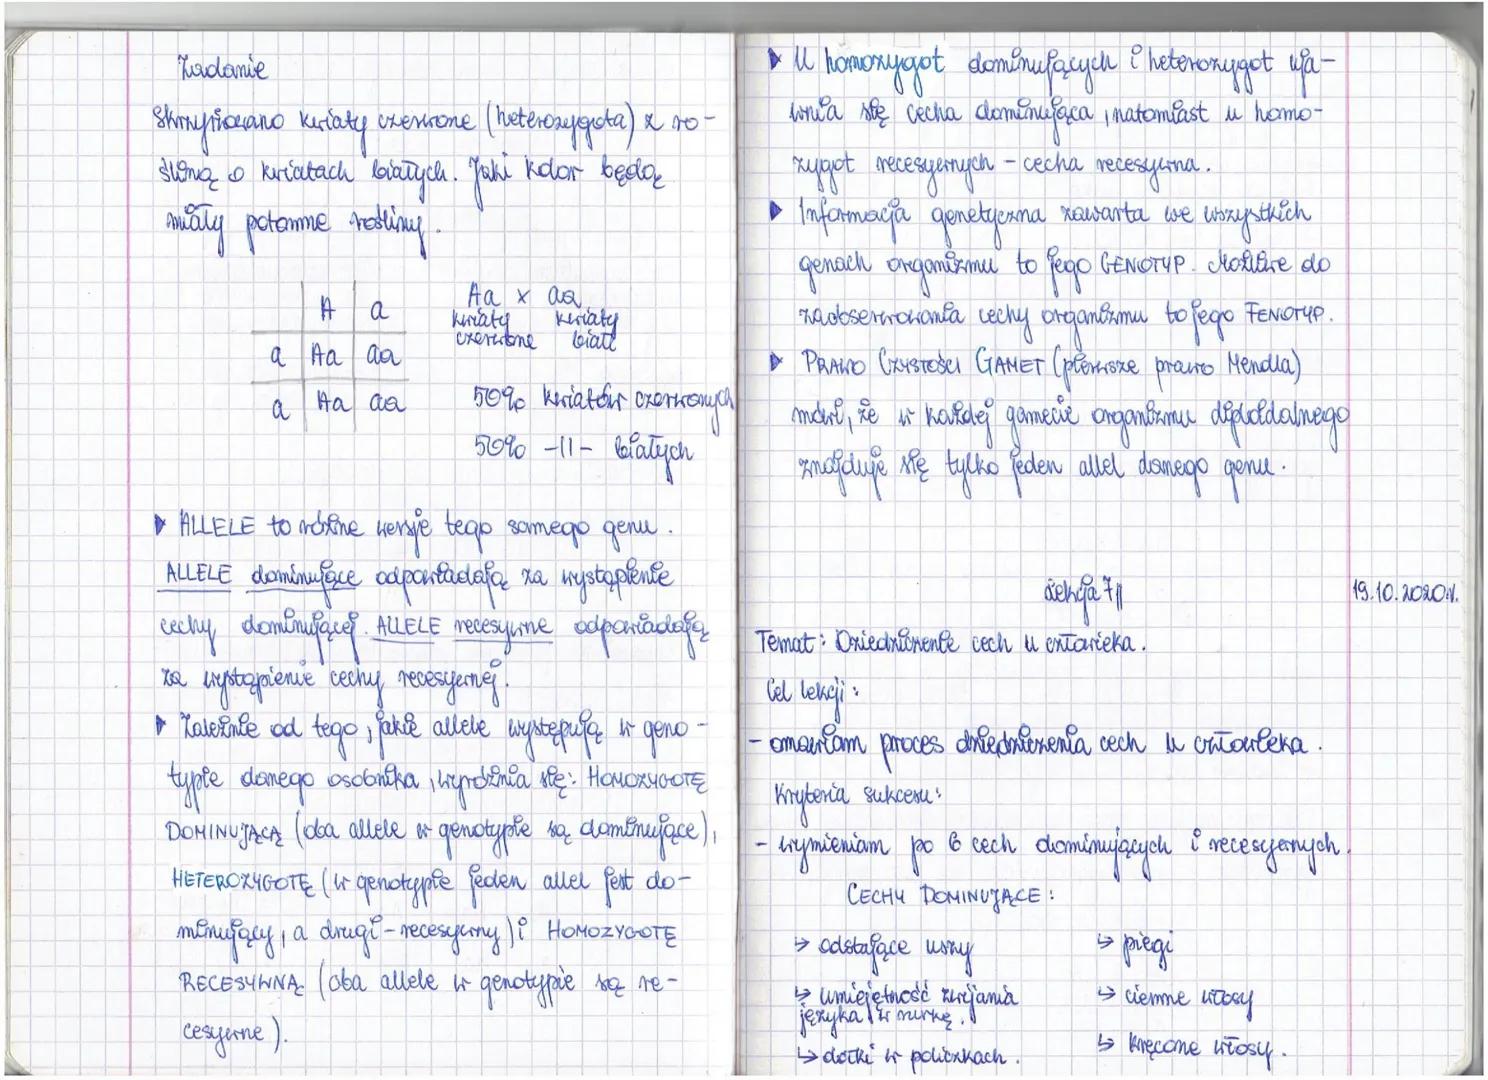 Zadanie
Skrzyżowano kwiaty czerwone (heterozygota) z ro-
śliną o kwiatach białych. Jaki kolor będą
miały potomne rośliny.
A a
a Aa aa
a Aa aa
Aa x aa
kwiaty kwiaty
czerwone białe
50% kwiatów czerwonych
50% -||- białych
▶ ALLELE to różne wersje tego samego genu.
ALLELE dominujące odpowiadają za wystąpienie
cechy dominującej. ALLELE recesywne odpowiadają
za wystąpienie cechy recesywnej.
▶ Zależnie od tego, jakie allele występują w geno-
typie danego osobnika, wyróżnia się: HOMOZYGOTĘ
DOMINUJĄCĄ (oba allele w genotypie są dominujące),
HETEROZYGOTĘ (w genotypie jeden allel jest do-
minujący, a drugi - recesywny) i HOMOZYGOTĘ
RECESYWNĄ (oba allele w genotypie są re-
cesywne).
▶ U homozygot dominujących i heterozygot uja-
wnia się cecha dominująca, natomiast u homo-
zygot recesywnych - cecha recesywna.
▶ Informacja genetyczna zawarta we wszystkich
genach organizmu to jego GENOTYP. Możliwe do
zaobserwowania cechy organizmu to jego FENOTYP.
▶ PRAWO CZYSTOŚCI GAMET (pierwsze prawo Mendla)
mówi, że w każdej gamecie organizmu diploidalnego
znajduje się tylko jeden allel danego genu.
Lekcja 7 19.10.2020r.
Temat: Dziedziczenie cech u człowieka.
Cel lekcji:
- omawiam proces dziedziczenia cech u człowieka.
Kryteria sukcesu:
- wymieniam po 6 cech dominujących i recesywnych.
CECHY DOMINUJĄCE:
↳ odstające uszy
↳ umiejętność zwijania
języka w rurkę.
↳ dołki w policzkach.
↳ piegi
↳ ciemne włosy
↳ kręcone włosy.